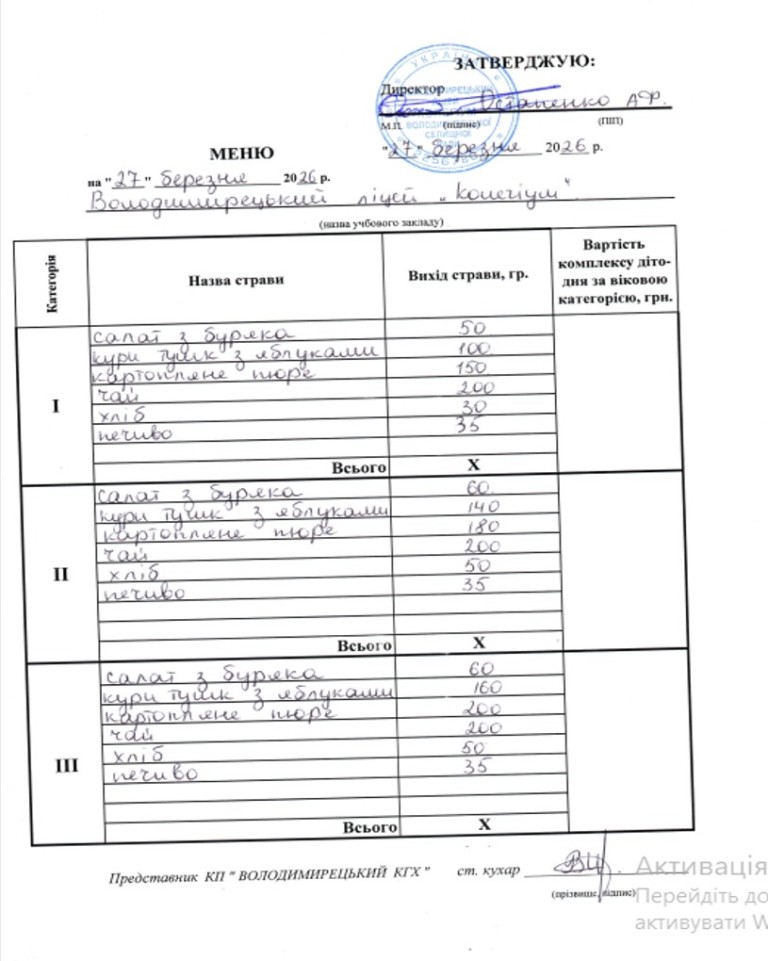 ЗАТВЕРДЖУЮ:
Директор
Остапенко А.Ф.
М.П. (підпис) (ПІП)
"27" березня 2026 р.
МЕНЮ
на "27" березня 2026 р.
Володимирецький ліцей „Колегіум“
(назва учбового закладу)
Категорія
Назва страви
Вихід страви, гр.
Вартість
комплексу діто-
дня за віковою
категорією, грн.
I
салат з буряка 50
кури тушк з яблуками 100
картопляне пюре 150
чай 200
хліб 30
печиво 35
Всього X
II
салат з буряка 60
кури тушк з яблуками 140
картопляне пюре 180
чай 200
хліб 50
печиво 35
Всього X
III
салат з буряка 60
кури тушк з яблуками 160
картопляне пюре 200
чай 200
хліб 50
печиво 35
Всього X
Представник КП " ВОЛОДИМИРЕЦЬКИЙ КГХ " ст. кухар
(прізвище, підпис)
Активація
Перейдіть до
активувати W